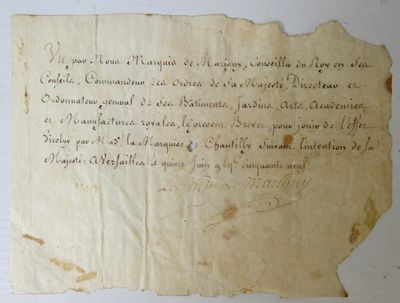 Vu par Nous Marquis de Marigny, Conseiller du Roy en Ses
Conseils, Commandeur des Ordres de Sa Majesté, Directeur et
Ordonnateur general de Ses Bâtiments, Jardins Arts, Academies
et Manufactures royales, le present Brevet, pour jouir de l'effet
d'iceluy par Mad. la Marquise de Chantilly suivant l'intention de Sa
Majesté, a Versailles le quinze Juin cinquante neuf
Le Marigny